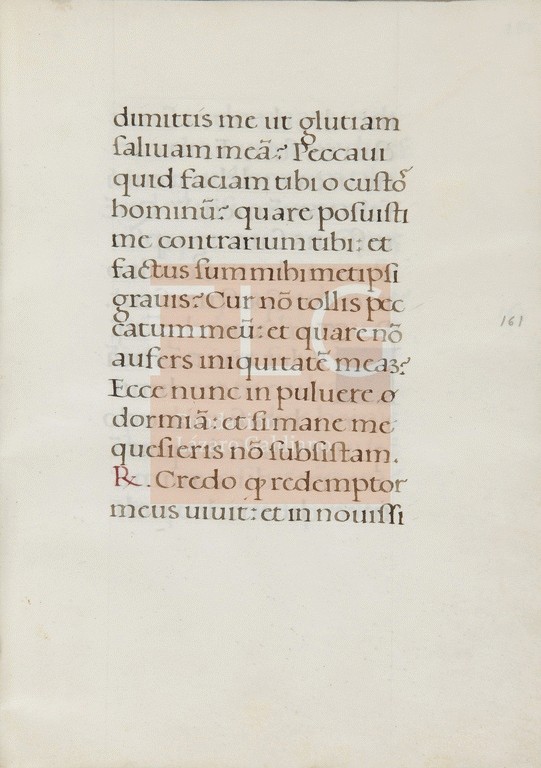 dimittis me ut glutiam
ſaliuam meã? Peccaui
quid faciam tibi o cuſto᷒
hominũ? quare poſuiſti
me contrarium tibi: et
factus ſum mihi metipſi
grauis? Cur nõ tollis pec
catum meũ: et quare nõ
aufers iniquitatẽ meaꝫ?
Ecce nunc in puluere
dormiã: et ſi mane me
queſieris nõ ſubſiſtam.
℞. Credo ꝙ redemptor
meus uiuit: et in nouiſſi
161
TLC
Lázaro Galdiano